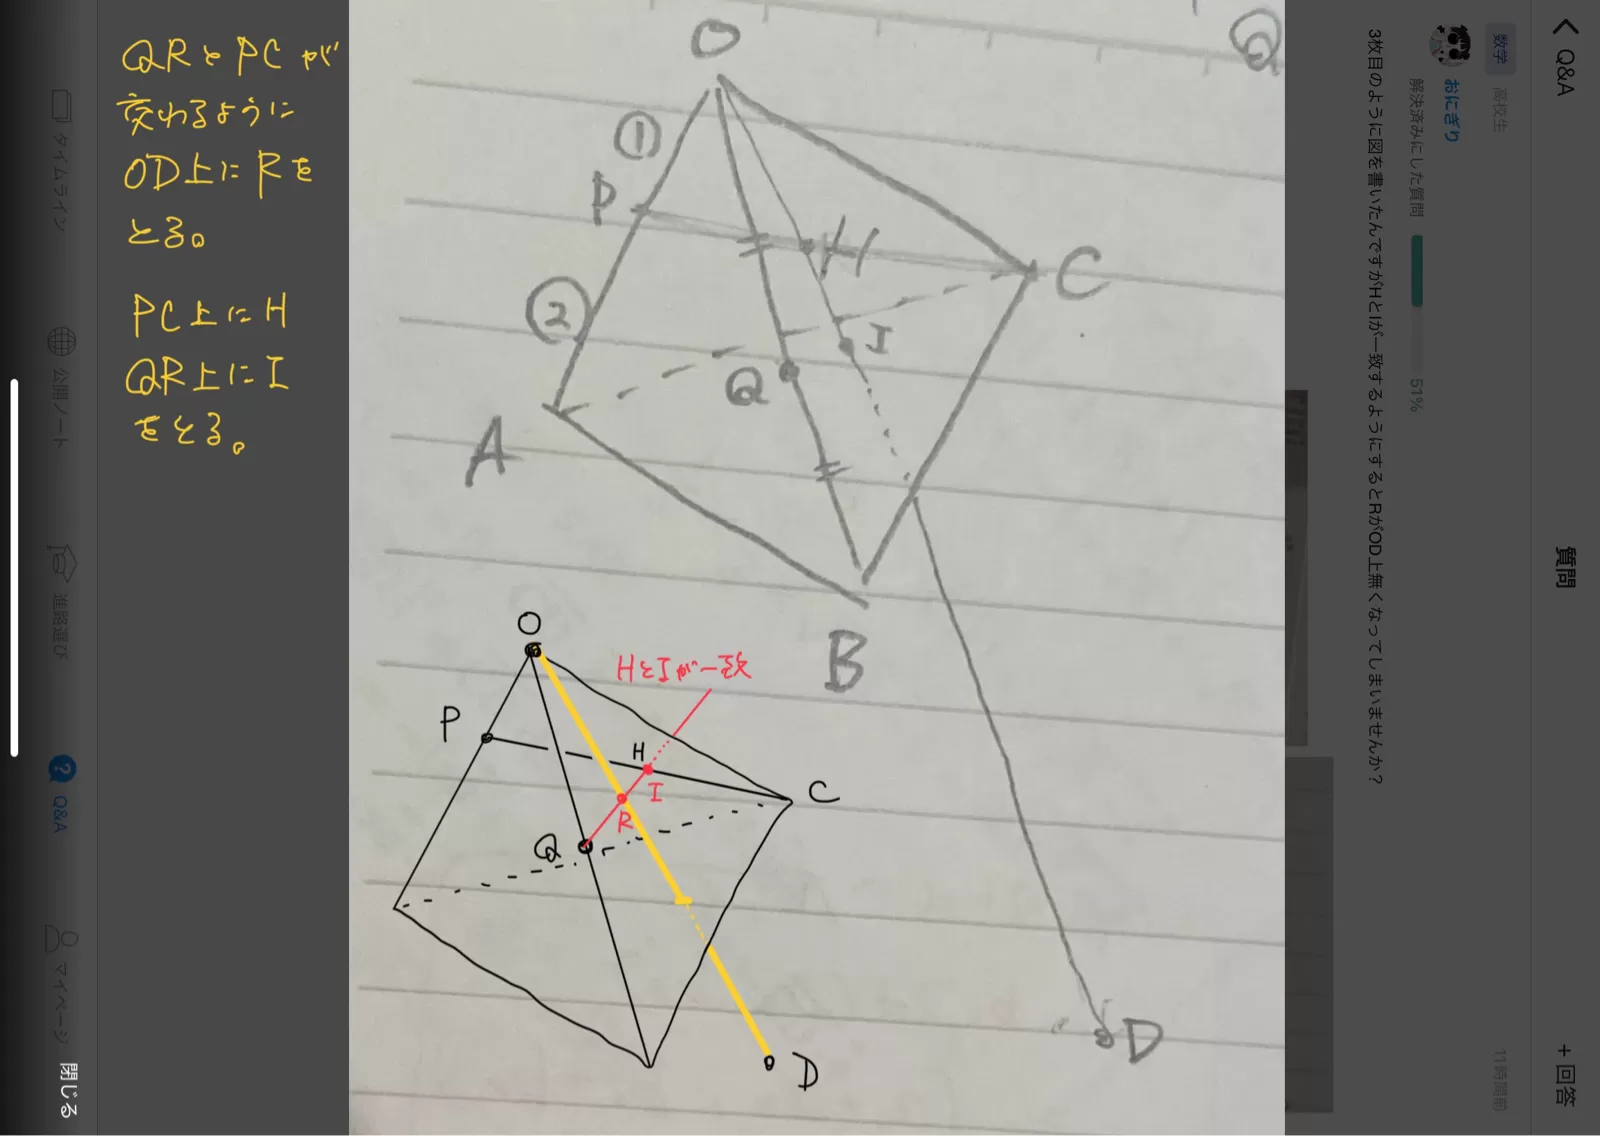 QRとPCが
交わるように
OD上にRを
とる。
PC上にH
QR上にI
をとる。
O
①
P
H
C
②
I
Q
A
B
D
Q
O
HとIが一致
P
H
C
I
R
Q
D
Q&A
質問
+ 回答
数学
高校生
おにぎり
解決済みにした質問
51%
11時間前
3枚目のように図を書いたんですがHとIが一致するようにするとRがOD上無くなってしまいませんか？
タイムライン
公開ノート
進路選び
Q&A
マイページ
閉じる